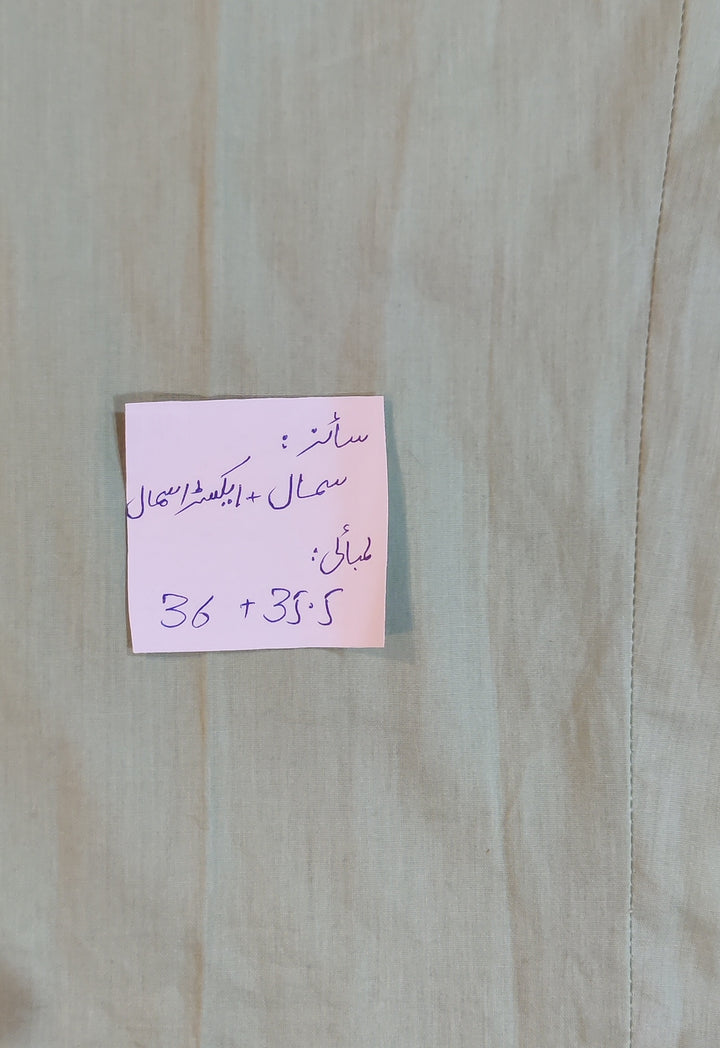 سائز :
سمال + ایکسٹرا سمال
لمبائی :
36 + 35.5